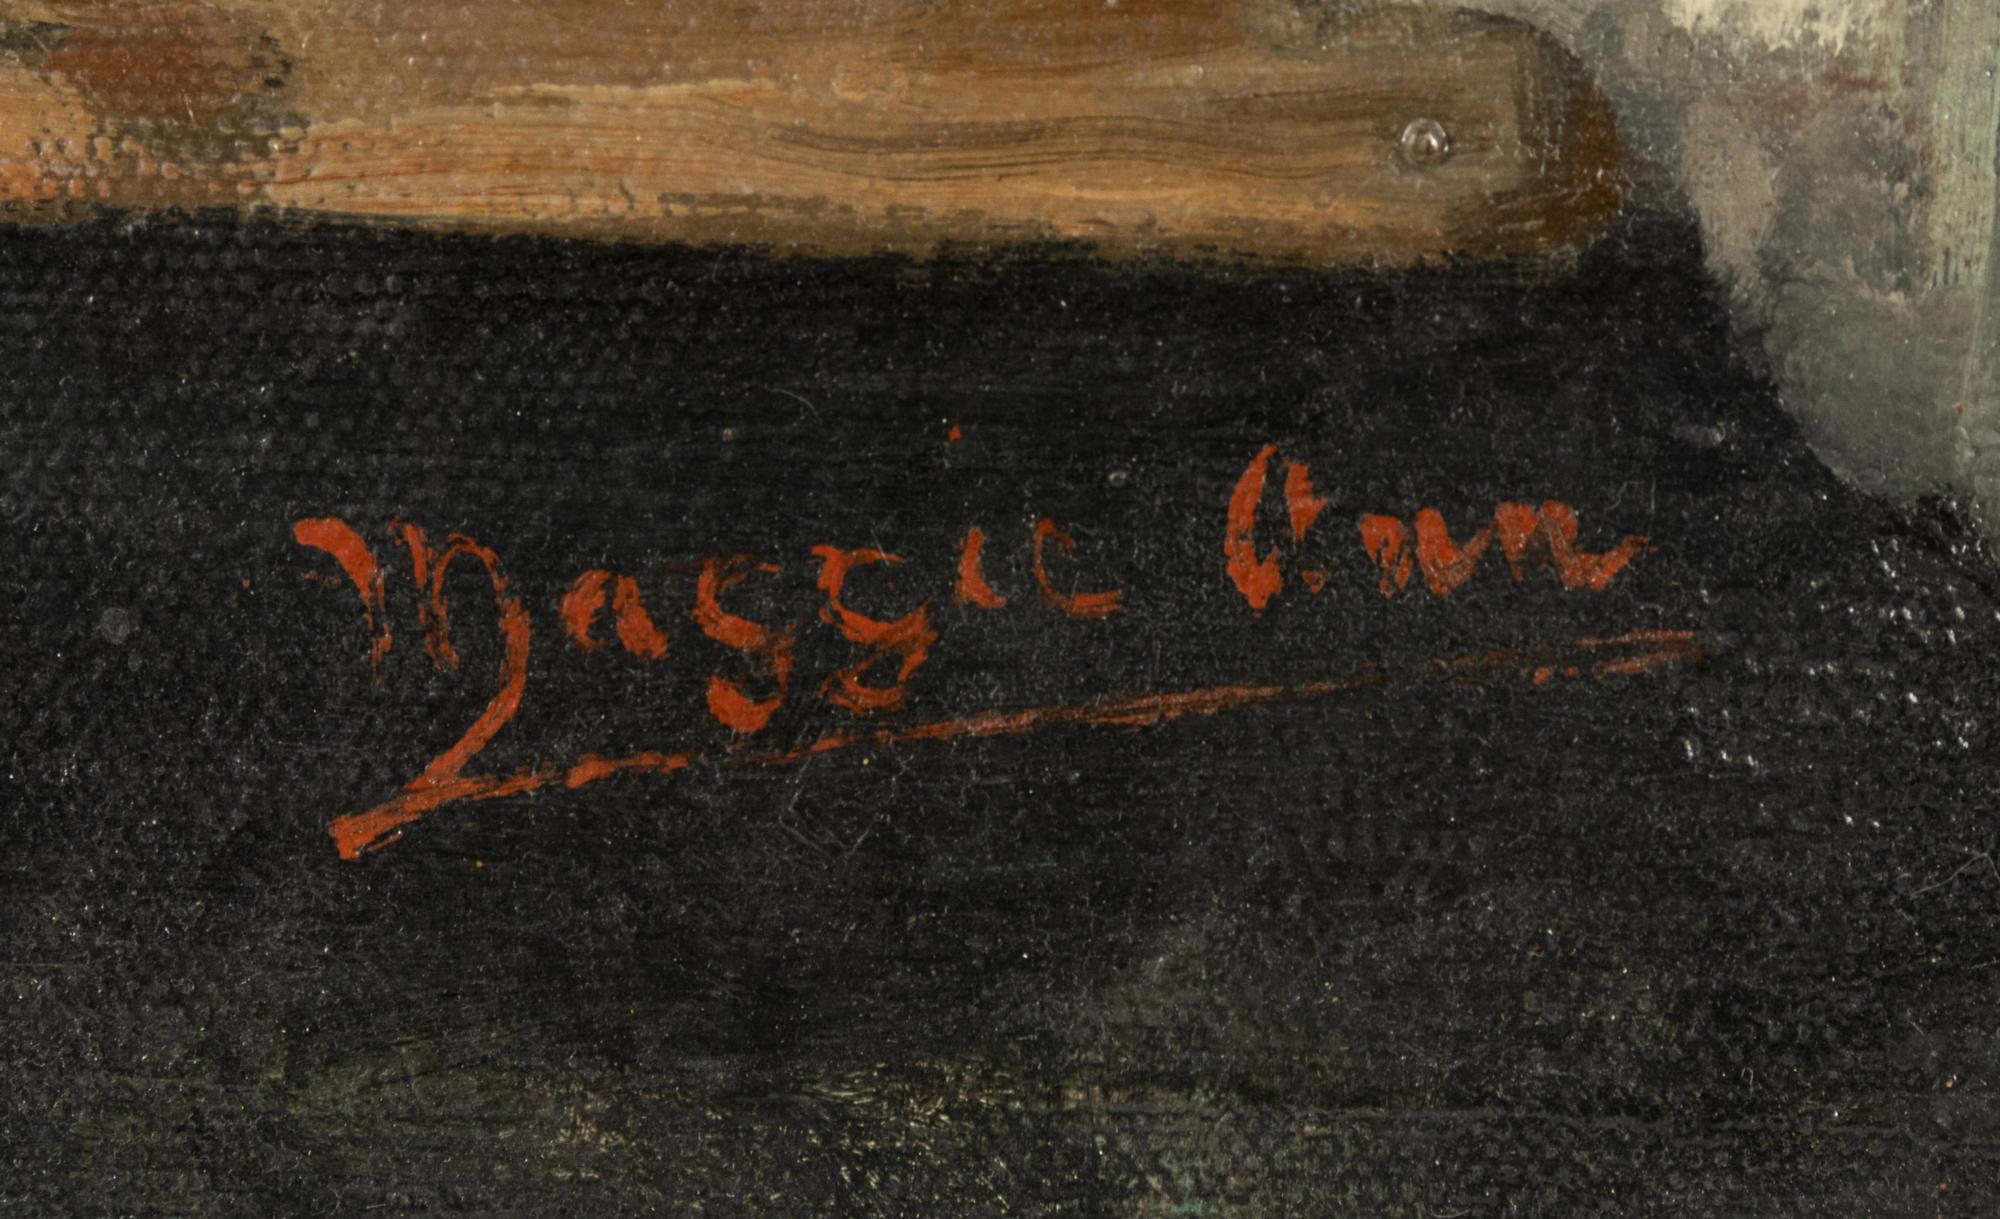 Maggie Ann